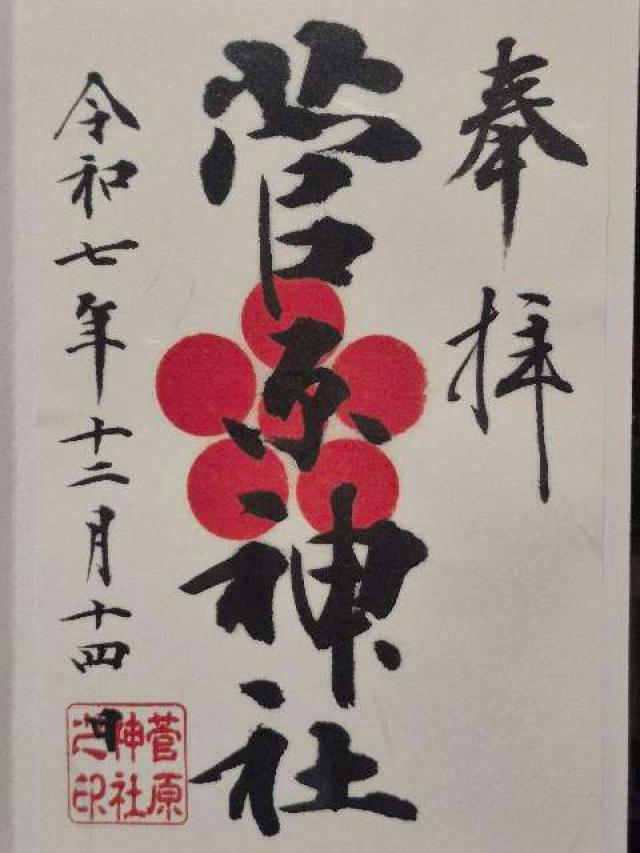 奉拝
菅原神社
令和七年十二月十四日
菅原
神社
之印